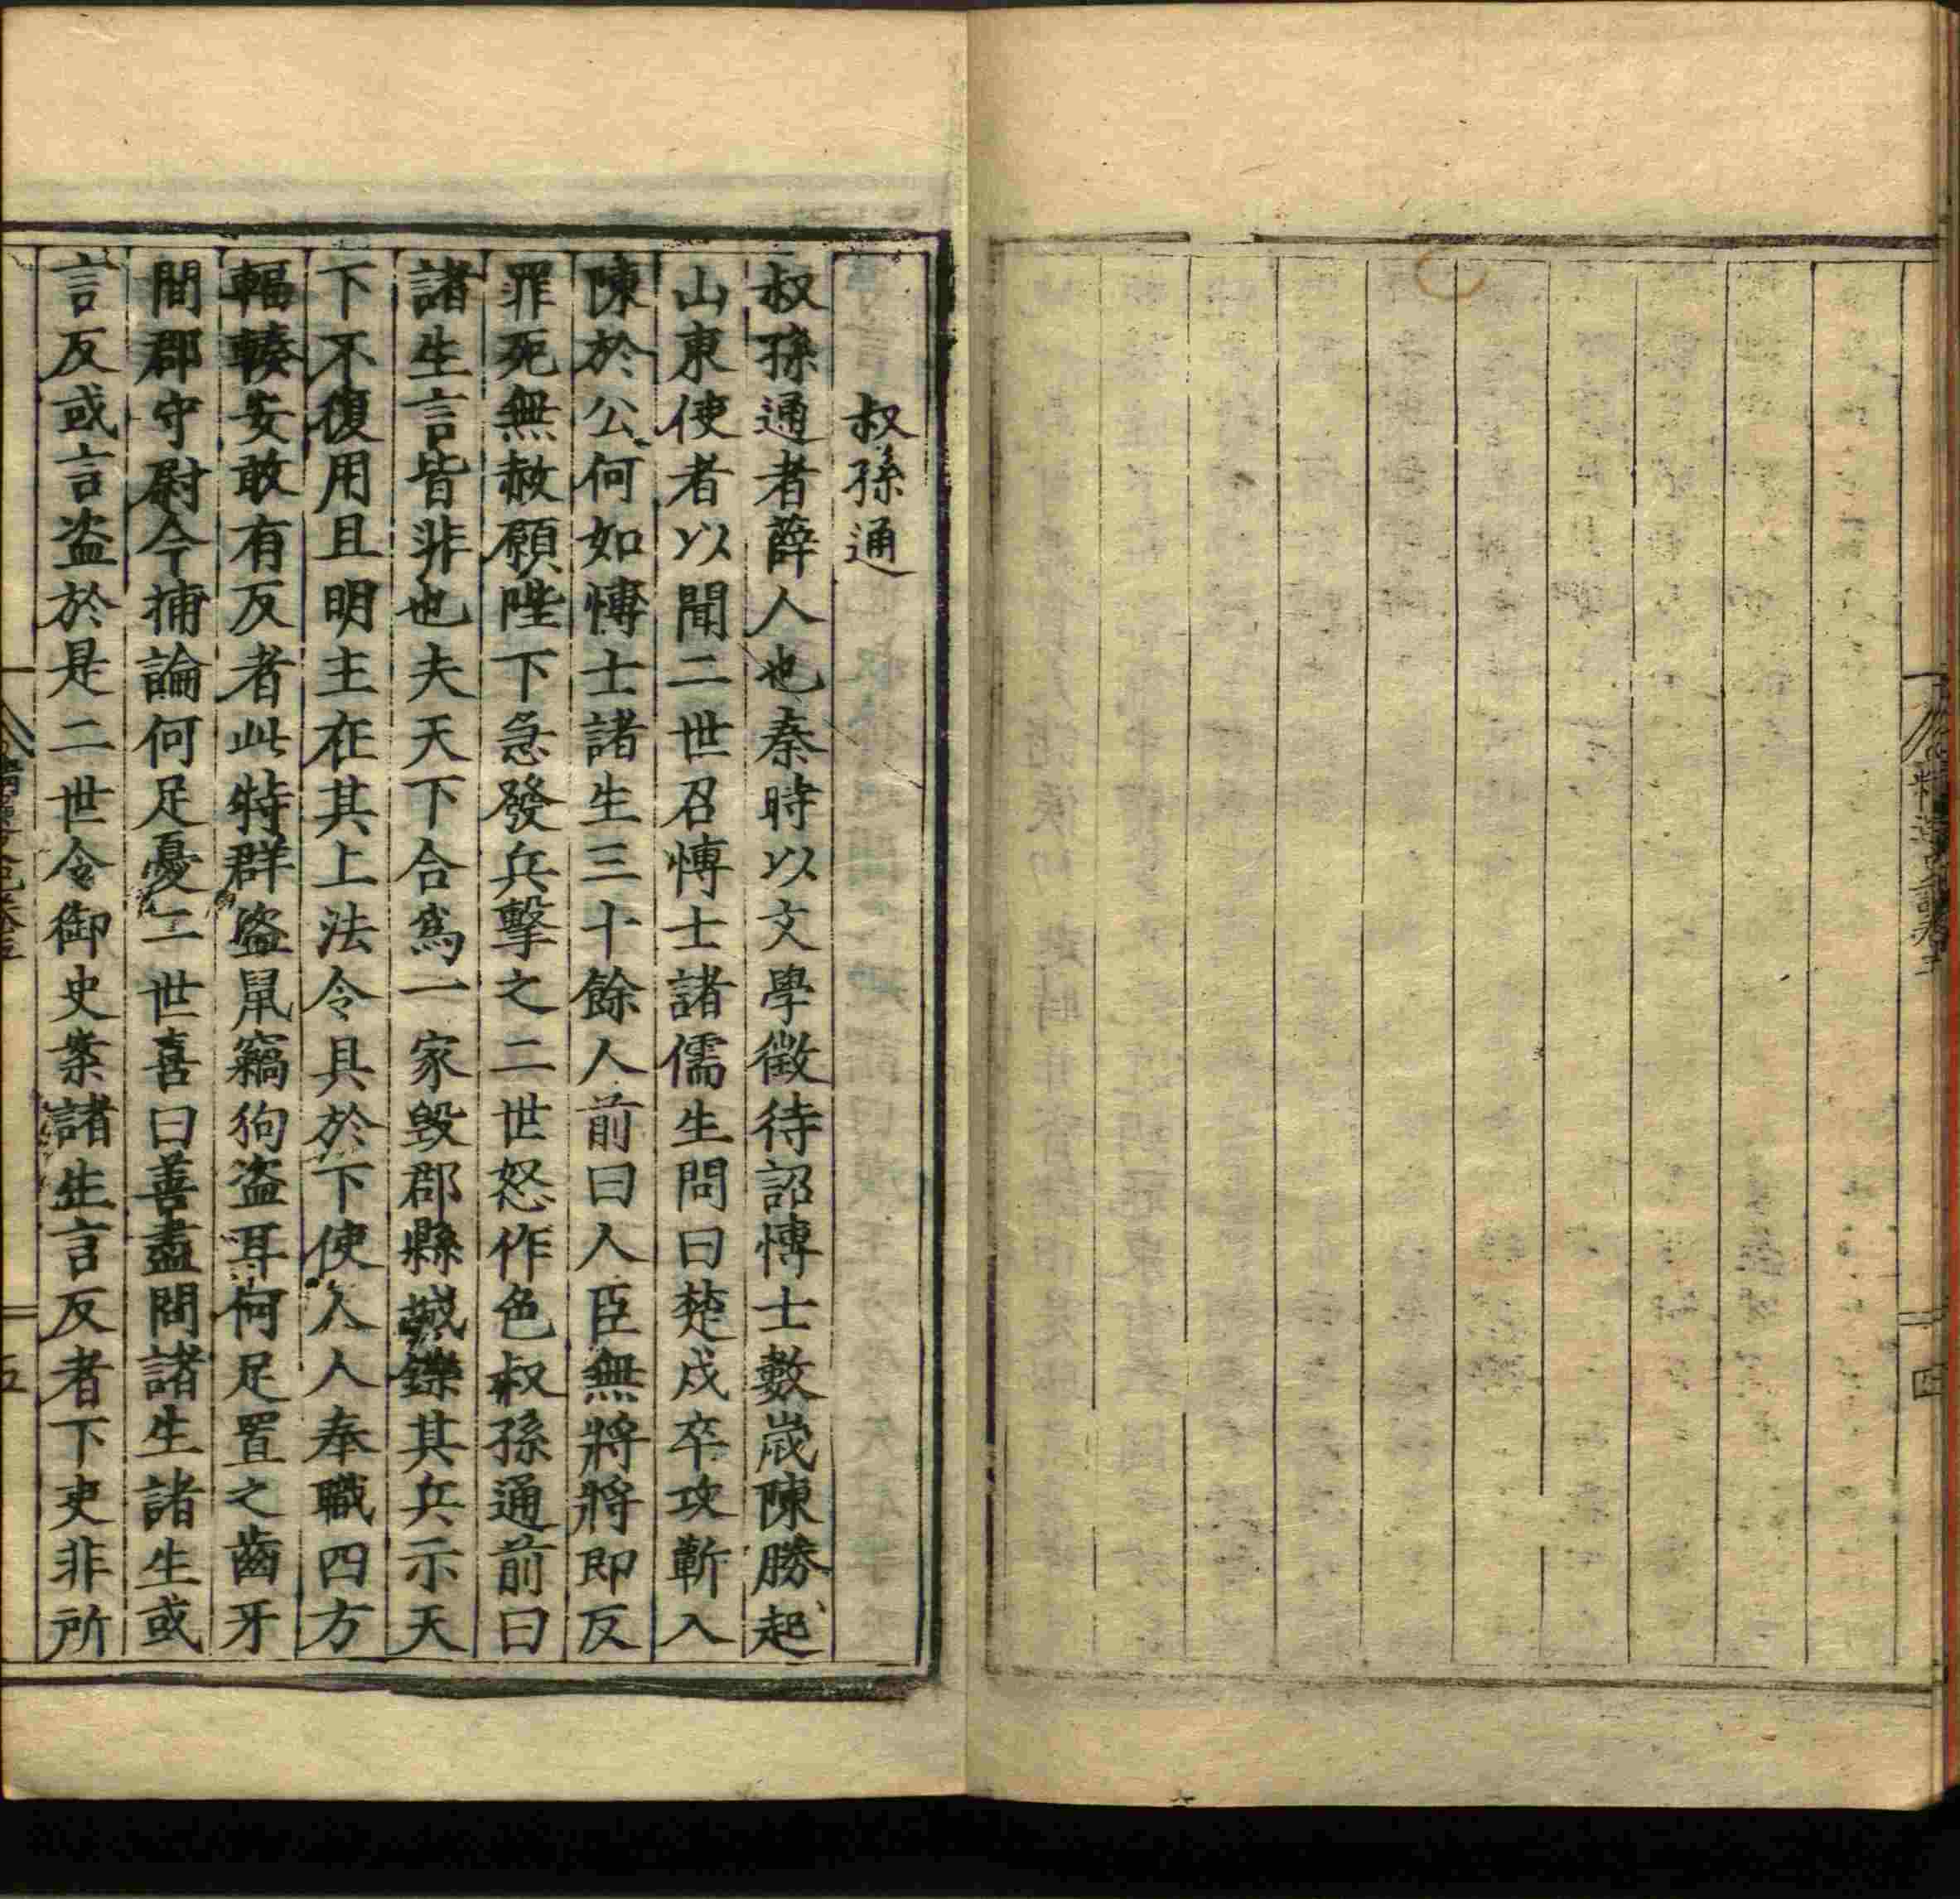 叔孫通
叔孫通者薛人也秦時以文學徵待詔博士數歲陳勝起
山東使者以聞二世召博士諸儒生問曰楚戍卒攻蘄入
陳於公何如博士諸生三十餘人前曰人臣無將將即反
罪死無赦願陛下急發兵擊之二世怒作色叔孫通前曰
諸生言皆非也夫天下合爲一家毀郡縣城鑠其兵示天
下不復用且明主在其上法令具於下使人人奉職四方
輻輳安敢有反者此特群盜鼠竊狗盜耳何足置之齒牙
間郡守尉今捕論何足憂二世喜曰善盡問諸生諸生或
言反或言盜於是二世令御史案諸生言反者下吏非所
四
五